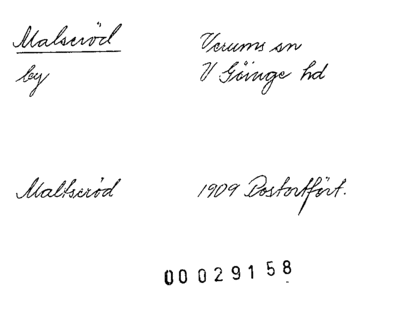 Malseröd Verums sn
by V Göinge hd
Maltseröd 1909 Postortfört.
00029158